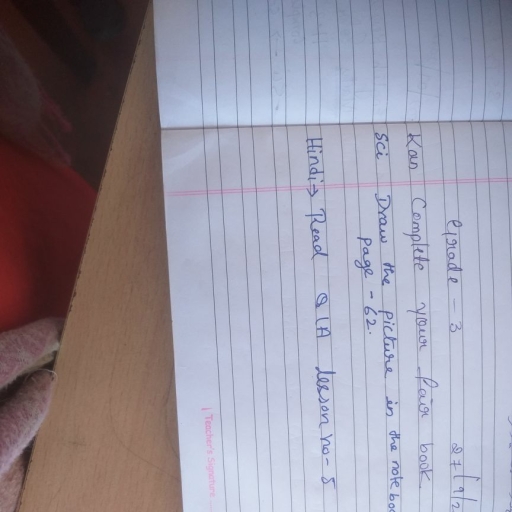 Grade - 3
27/9/2
Kan Complete your fair book.
Sci Draw the picture in the noteboo
page - 62.
Hindi → Read Q/A lesson no - 5
Teacher's Signature